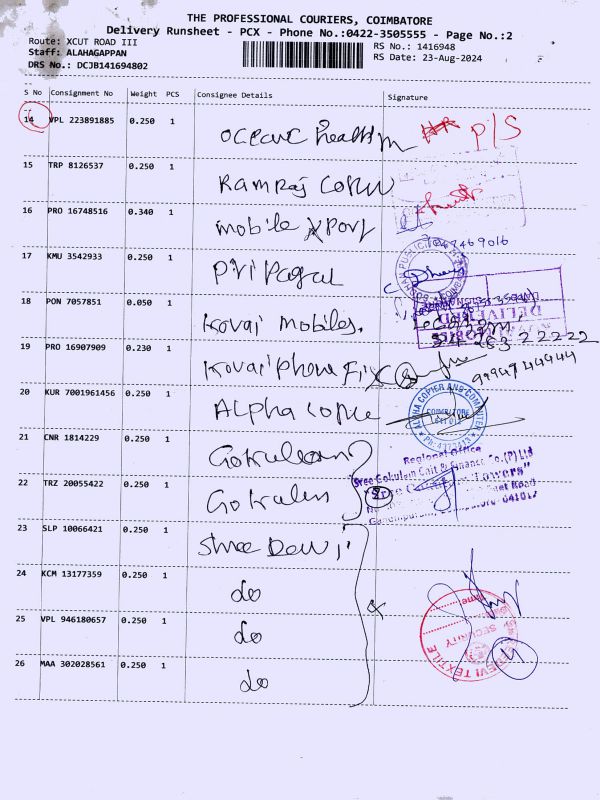 THE PROFESSIONAL COURIERS, COIMBATORE
Delivery Runsheet - PCX - Phone No.:0422-3505555 - Page No.:2
Route: XCUT ROAD III
RS No.: 1416948
Staff: ALAHAGAPPAN
RS Date: 23-Aug-2024
DRS No.: DCJB141694802
S No Consignment No Weight PCS Consignee Details Signature
14 VPL 223891885 0.250 1
P/S
15 TRP 8126537 0.250 1 Ramraj
16 PRO 16748516 0.340 1 Mobile
17 KMU 3542933 0.250 1
18 PON 7057851 0.050 1 Kovai Mobiles.
DELIVERED
19 PRO 16907909 0.230 1 Kovai phone Fix
99947 44944
20 KUR 7001961456 0.250 1 Alpha
ALPHA COPIER AND COMPUTER
COIMBATORE
641 012
21 CNR 1814229 0.250 1 Gokulam
Regional Office
Sree Gokulam Chit & Finance Co.(P) Ltd
22 TRZ 20055422 0.250 1 Gokulam
Towers"
Road
641012
23 SLP 10066421 0.250 1 Shree Devi
24 KCM 13177359 0.250 1 do
25 VPL 946180657 0.250 1 do
DEVI TEXTILE
SECURITY
4
26 MAA 302028561 0.250 1 do